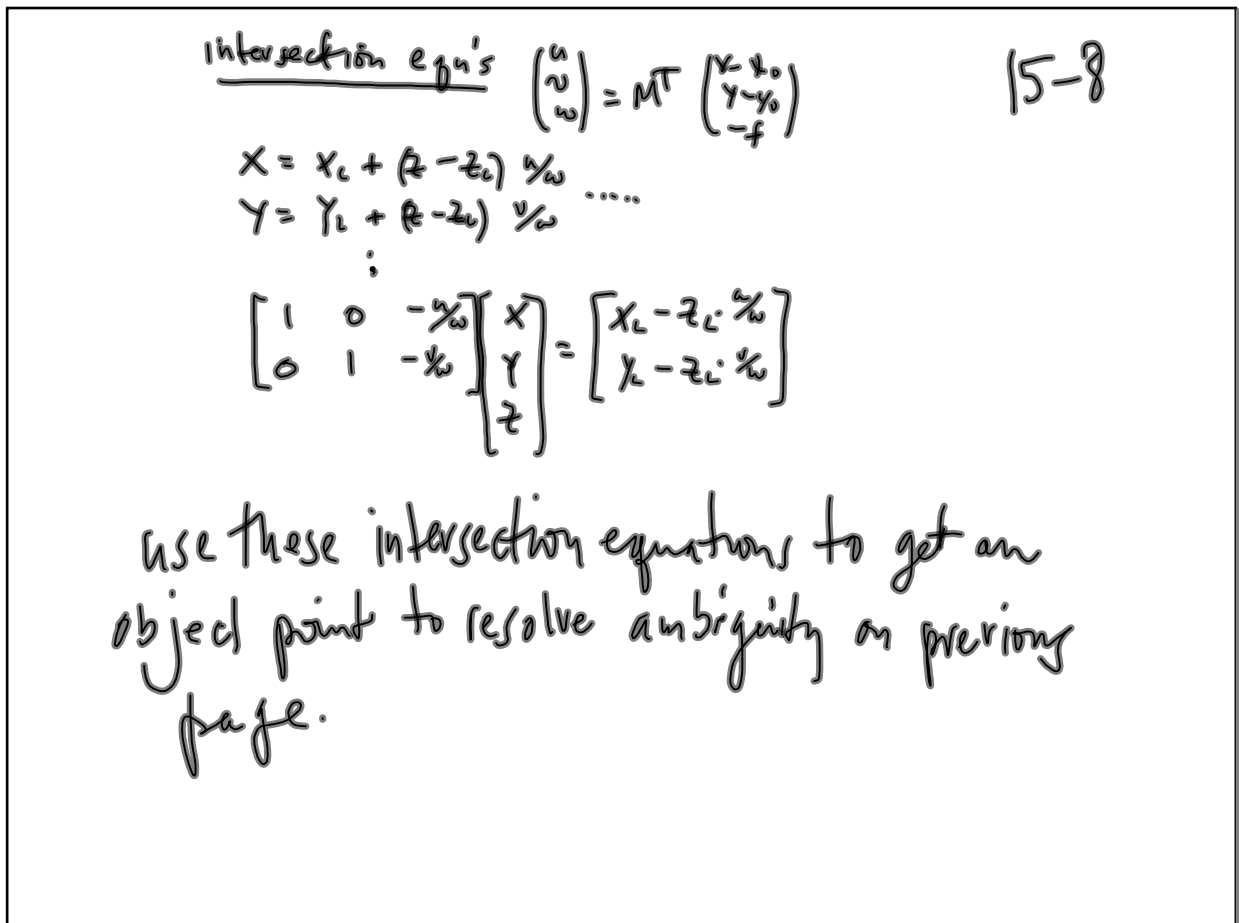 intersection eqn's (u v w) = Mᵀ (x-x₀ y-y₀ -f) 15-8
X = X_L + (Z - Z_L) u/w
Y = Y_L + (Z - Z_L) v/w .....
:
[1 0 -u/w] [X] = [X_L - Z_L · u/w]
[0 1 -v/w] [Y] [Y_L - Z_L · v/w]
[Z]
use these intersection equations to get an
object point to resolve ambiguity on previous
page.